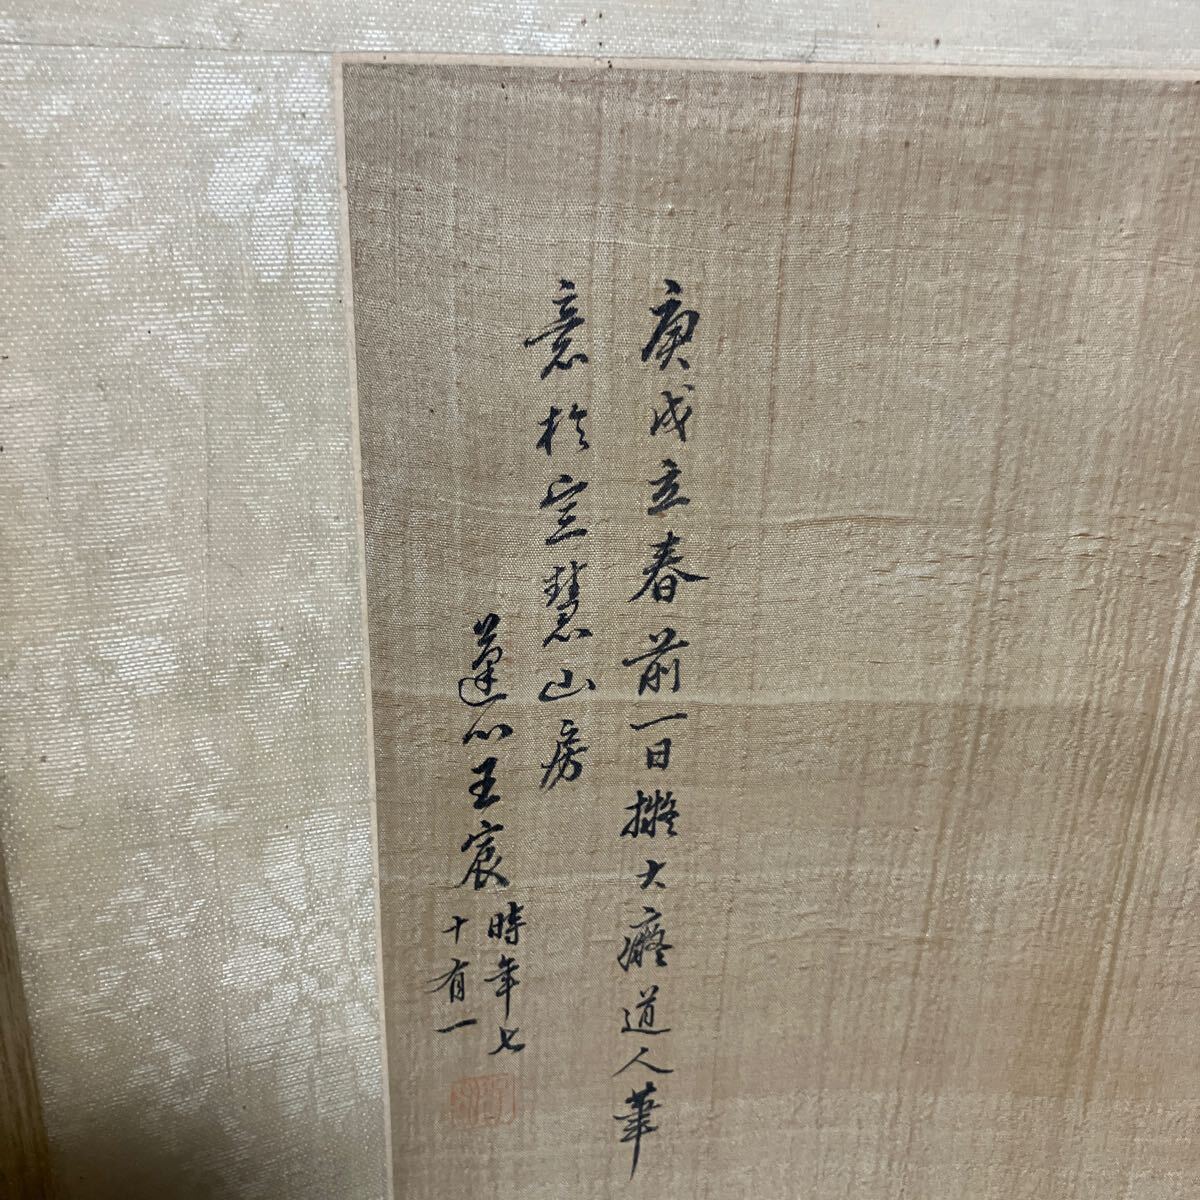 庚戌立春前一日擬大癡道人筆
意於定慧山房
蓬心王宸時年七
十有一